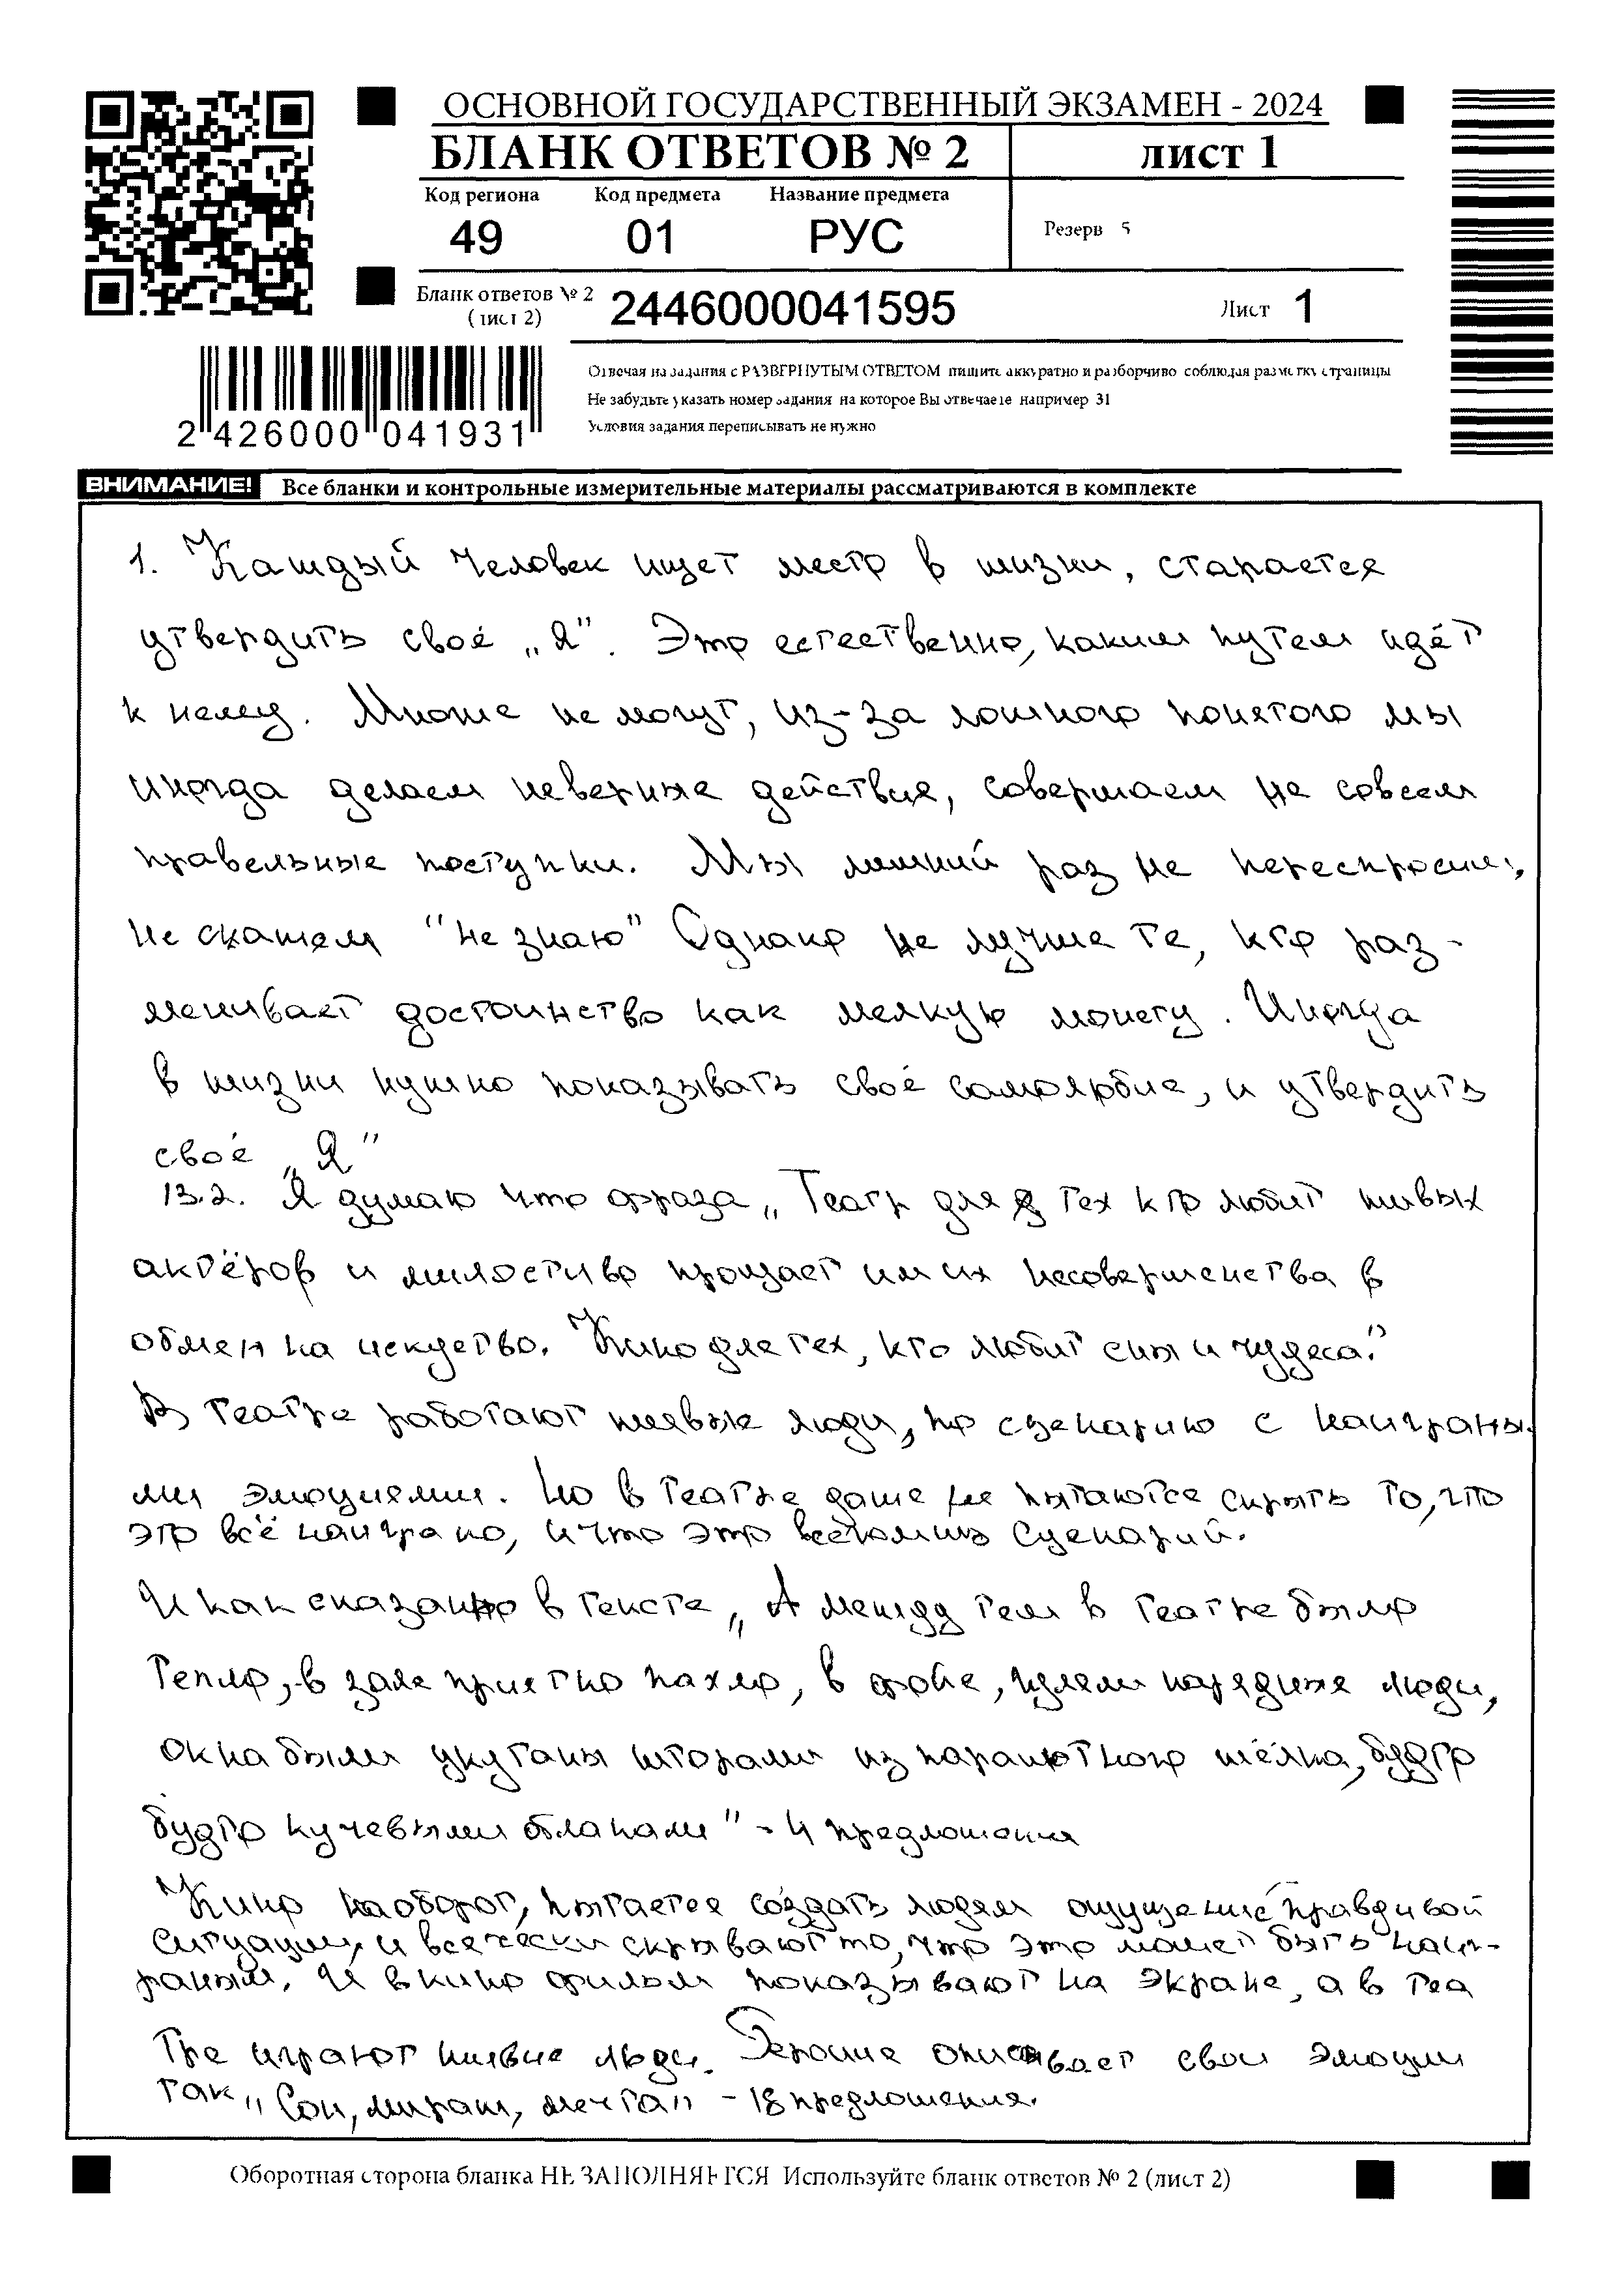 ОСНОВНОЙ ГОСУДАРСТВЕННЫЙ ЭКЗАМЕН - 2024
БЛАНК ОТВЕТОВ № 2
лист 1
Код региона Код предмета Название предмета
49 01 РУС
Резерв 5
Бланк ответов № 2
(лист 2)
2446000041595
Лист 1
2 426000 041931
Отвечая на задания с РАЗВЕРНУТЫМ ОТВЕТОМ пишите аккуратно и разборчиво соблюдая разметку страницы
Не забудьте указать номер задания на которое Вы отвечаете например 31
Условия задания переписывать не нужно
ВНИМАНИЕ! Все бланки и контрольные измерительные материалы рассматриваются в комплекте
1. Каждый человек ищет место в жизни, старается
утвердить своё „Я". Это естественно, каким путем идёт
к нему. Многие не могут, из-за ложного понятого мы
иногда делаем неверные действия, совершаем не совсем
правельные поступки. Мы лишний раз не переспросим,
не скажем "не знаю" Однако не лучше те, кто раз-
менивает достоинство как мелкую монету. Иногда
в жизни нужно показывать своё самолюбие, и утвердить
своё „Я"
13.2. Я думаю что фраза „Театр для тех кто любит живых
актёров и милостиво прощает им их несовершенства в
обмен на искуство. Кино для тех, кто любит сны и чудеса."
В театре работают живые люди, по сценарию с наиграны
ми эмоциями. Но в театре даже не пытаются скрыть то, что
это всё наиграно, и что это всеголишь сценарий.
И как сказанно в тексте „А между тем в театре было
тепло, в зале приятно пахло, в фойе, гуляли нарядные люди,
окна были укутаны шторами из парашютного шёлка, будто
будто кучевыми облаками" - 4 предложения
Кино наоборот, пытается создать людям ощущение правдивой
ситуации, и всечески скрывают то, что это может быть наиг-
раным. И в кино фильм показывают на экране, а в теа
тре играют живые люди. Героиня описывает свои эмоции
так „Сон, мираж, мечта" - 18 предложения.
Оборотная сторона бланка НЕ ЗАПОЛНЯЕТСЯ Используйте бланк ответов № 2 (лист 2)